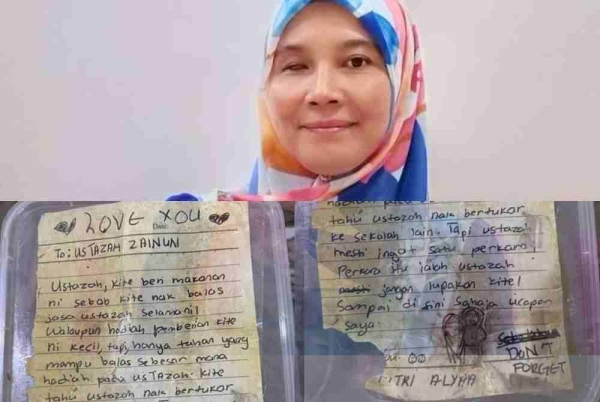 LOVE YOU
Date:
To: USTAZAH ZAINUN
Ustazah, kite beri makanan
ni sebab kite nak balas
jasa ustazah selama ni!
Walaupun hadiah pemberian kite
ni kecil, tapi, hanya tuhan yang
mampu balas sebesar mana
hadiah pada ustazah. kite
tahu ustazah nak bertukar
tahu ustazah nak bertukar
ke sekolah lain. Tapi ustazah
mesti ingat satu perkara!
Perkara itu ialah ustazah
jangan lupakan kite!
Sampai di sini sahaja ucapan
saya.
DON'T
FORGET
TRI ALYAA